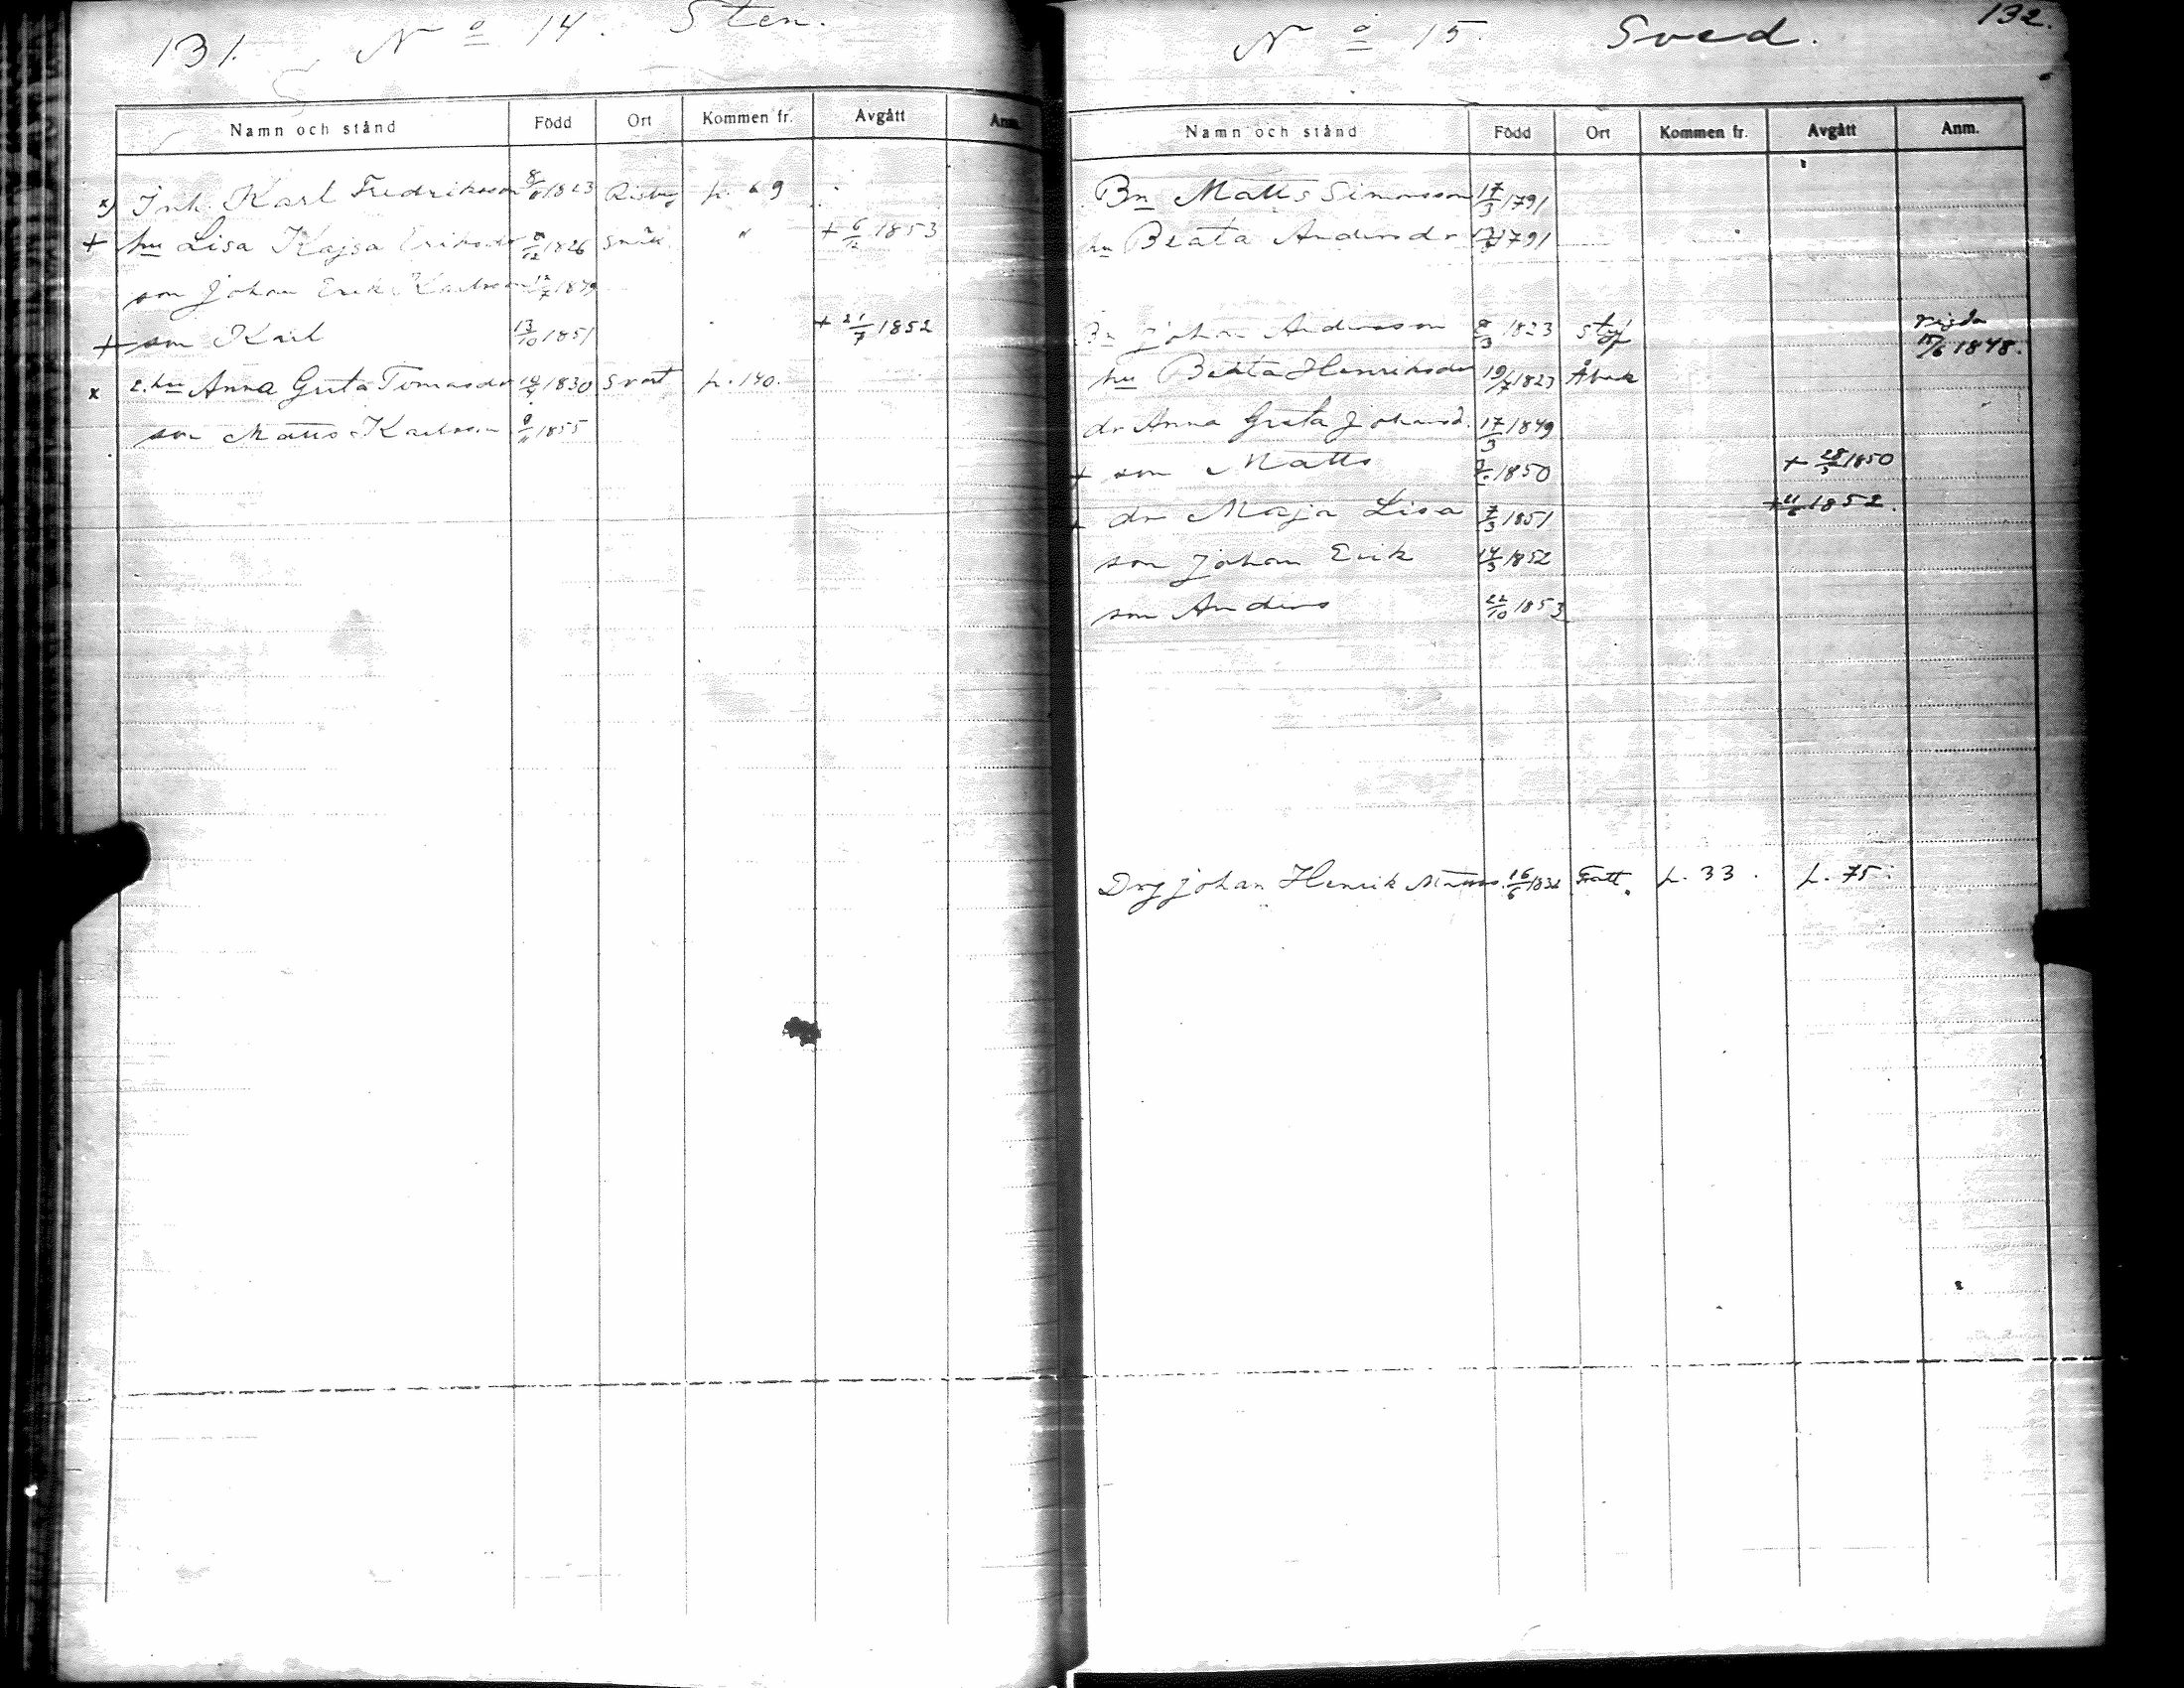 131. No 14. Sten.
Namn och stånd Född Ort Kommen fr. Avgått Anm.
x) Inh. Karl Fredriksson 1823 p. 69
+ hu Lisa Kajsa Eriksdr 1826 " + 6/12 1853
son Johan Erik Karlsson 1849
+ son Karl 13/10 1851 + 21/7 1852
x 2. hu Anna Greta Tomasdr 1830 Svart p. 140.
son Matts Karlsson 1855
No 15. Sved. 132.
Namn och stånd Född Ort Kommen fr. Avgått Anm.
Bn Matts Simonsson 17/3 1791
hu Beata Andersdr 1791
Bn Johan Andersson 8/3 1823 vigda 15/6 1848.
hu Beata Henriksdr 19/7 1823
dr Anna Greta Johansd. 17/3 1849
+ son Matts 1850 + 28/5 1850
dr Maja Lisa 7/3 1851 + 1852.
son Johan Erik 14/3 1852
son Anders 22/10 1853
Drg Johan Henrik 16/6 p. 33. p. 75.